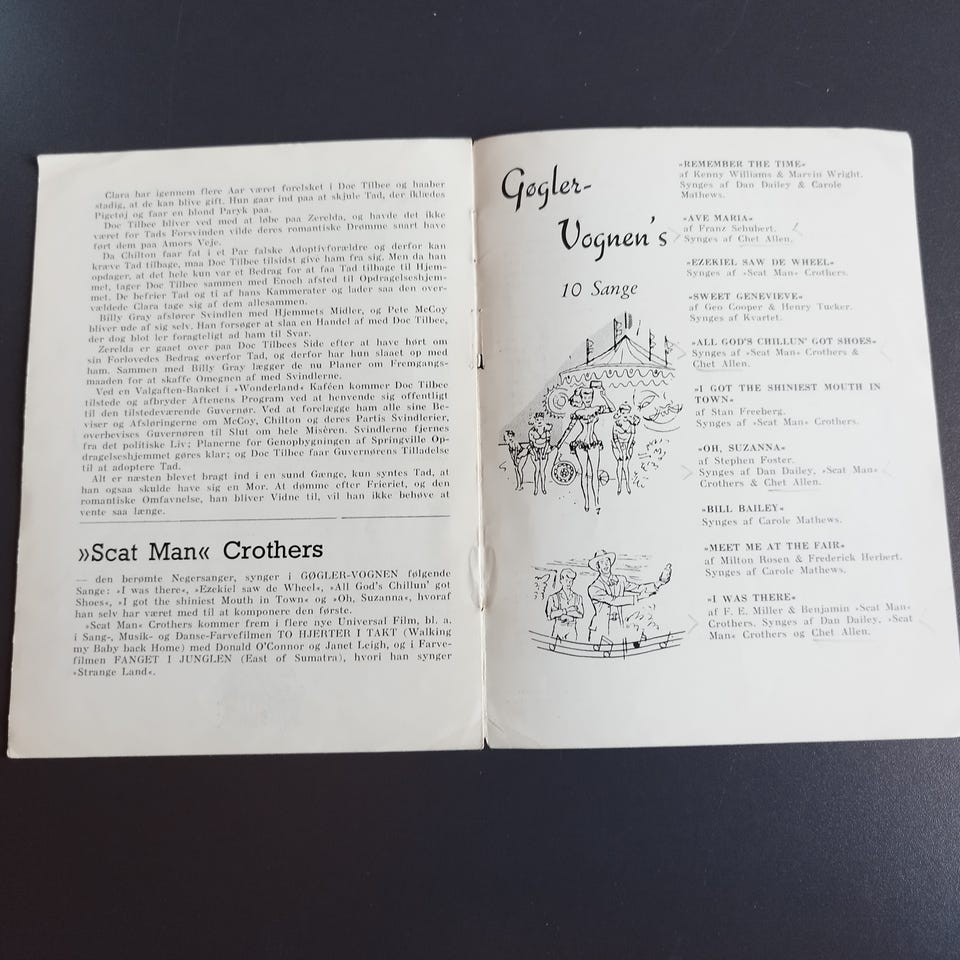 Clara har igennem flere Aar været forelsket i Doc Tilbee og haaber
stadig, at de kan blive gift. Hun gaar ind paa at skjule Tad, der iklædes
Pigetøj og faar en blond Paryk paa.
Doc Tilbee bliver ved med at løbe paa Zerelda, og havde det ikke
været for Tads Forsvinden vilde deres romantiske Drømme snart have
ført dem paa Amors Veje.
Da Chilton faar fat i et Par falske Adoptivforældre og derfor kan
kræve Tad tilbage, maa Doc Tilbee tilsidst give ham fra sig. Men da han
opdager, at det hele kun var et Bedrag for at faa Tad tilbage til Hjem-
met, tager Doc Tilbee sammen med Enoch afsted til Opdragelseshjem-
met. De befrier Tad og ti af hans Kammerater og lader saa den over-
vældede Clara tage sig af dem allesammen.
Billy Gray afslører Svindlen med Hjemmets Midler, og Pete McCoy
bliver ude af sig selv. Han forsøger at slaa en Handel af med Doc Tilbee,
der dog blot ler foragteligt ad ham til Svar.
Zerelda er gaaet over paa Doc Tilbees Side efter at have hørt om
sin Forlovedes Bedrag overfor Tad, og derfor har hun slaaet op med
ham. Sammen med Billy Gray lægger de nu Planer om Fremgangs-
maaden for at skaffe Omegnen af med Svindlerne.
Ved en Valgaften-Banket i »Wonderland« Kaféen kommer Doc Tilbee
tilstede og afbryder Aftenens Program ved at henvende sig offentligt
til den tilstedeværende Guvernør. Ved at forelægge ham alle sine Be-
viser og Afsløringerne om McCoy, Chilton og deres Partis Svindlerier,
overbevises Guvernøren til Slut om hele Misèren. Svindlerne fjernes
fra det politiske Liv; Planerne for Genopbygningen af Springville Op-
dragelseshjemmet gøres klar; og Doc Tilbee faar Guvernørens Tilladelse
til at adoptere Tad.
Alt er næsten blevet bragt ind i en sund Gænge, kun syntes Tad, at
han ogsaa skulde have sig en Mor. At dømme efter Frieriet, og den
romantiske Omfavnelse, han bliver Vidne til, vil han ikke behøve at
vente saa længe.
»Scat Man« Crothers
— den berømte Negersanger, synger i GØGLER-VOGNEN følgende
Sange: »I was there«, »Ezekiel saw de Wheel«, »All God's Chillun' got
Shoes«, »I got the shiniest Mouth in Town« og »Oh, Suzanna«, hvoraf
han selv har været med til at komponere den første.
»Scat Man« Crothers kommer frem i flere nye Universal Film, bl. a.
i Sang-, Musik- og Danse-Farvefilmen TO HJERTER I TAKT (Walking
my Baby back Home) med Donald O'Connor og Janet Leigh, og i Farve-
filmen FANGET I JUNGLEN (East of Sumatra), hvori han synger
»Strange Land«.
Gøgler-
Vognen's
10 Sange
»REMEMBER THE TIME«
af Kenny Williams & Marvin Wright.
Synges af Dan Dailey & Carole
Mathews.
»AVE MARIA«
af Franz Schubert.
Synges af Chet Allen.
»EZEKIEL SAW DE WHEEL«
Synges af »Scat Man« Crothers.
»SWEET GENEVIEVE«
af Geo Cooper & Henry Tucker.
Synges af Kvartet.
»ALL GOD'S CHILLUN' GOT SHOES«
Synges af »Scat Man« Crothers &
Chet Allen.
»I GOT THE SHINIEST MOUTH IN
TOWN«
af Stan Freeberg.
Synges af »Scat Man« Crothers.
»OH, SUZANNA«
af Stephen Foster.
Synges af Dan Dailey, »Scat Man«
Crothers & Chet Allen.
»BILL BAILEY«
Synges af Carole Mathews.
»MEET ME AT THE FAIR«
af Milton Rosen & Frederick Herbert.
Synges af Carole Mathews.
»I WAS THERE«
af F. E. Miller & Benjamin »Scat Man«
Crothers. Synges af Dan Dailey, »Scat
Man« Crothers og Chet Allen.